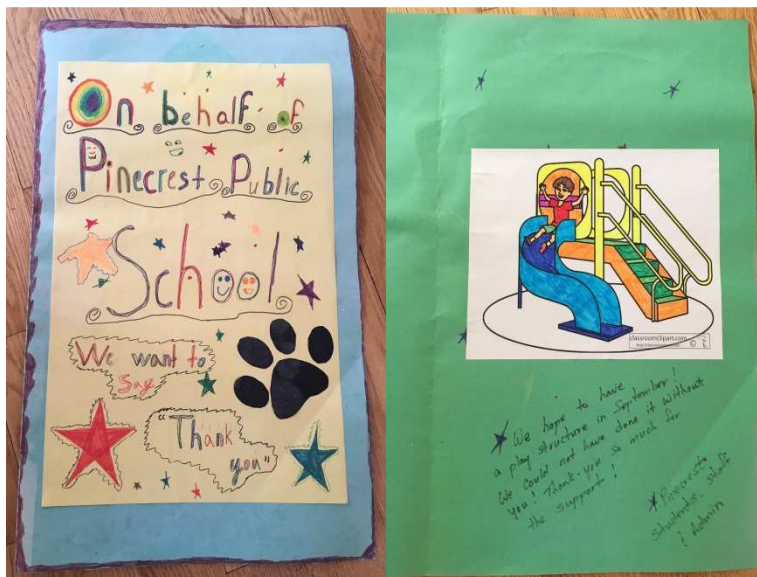 On behalf of
Pinecrest Public
School
We want to
Say
"Thank
you"
classroomclipart.com
http://classroomclipart.com
We hope to have
a play structure in September!
We could not have done it without
you! Thank-you so much for
the support!
Pinecrest
Students, Staff
& Admin